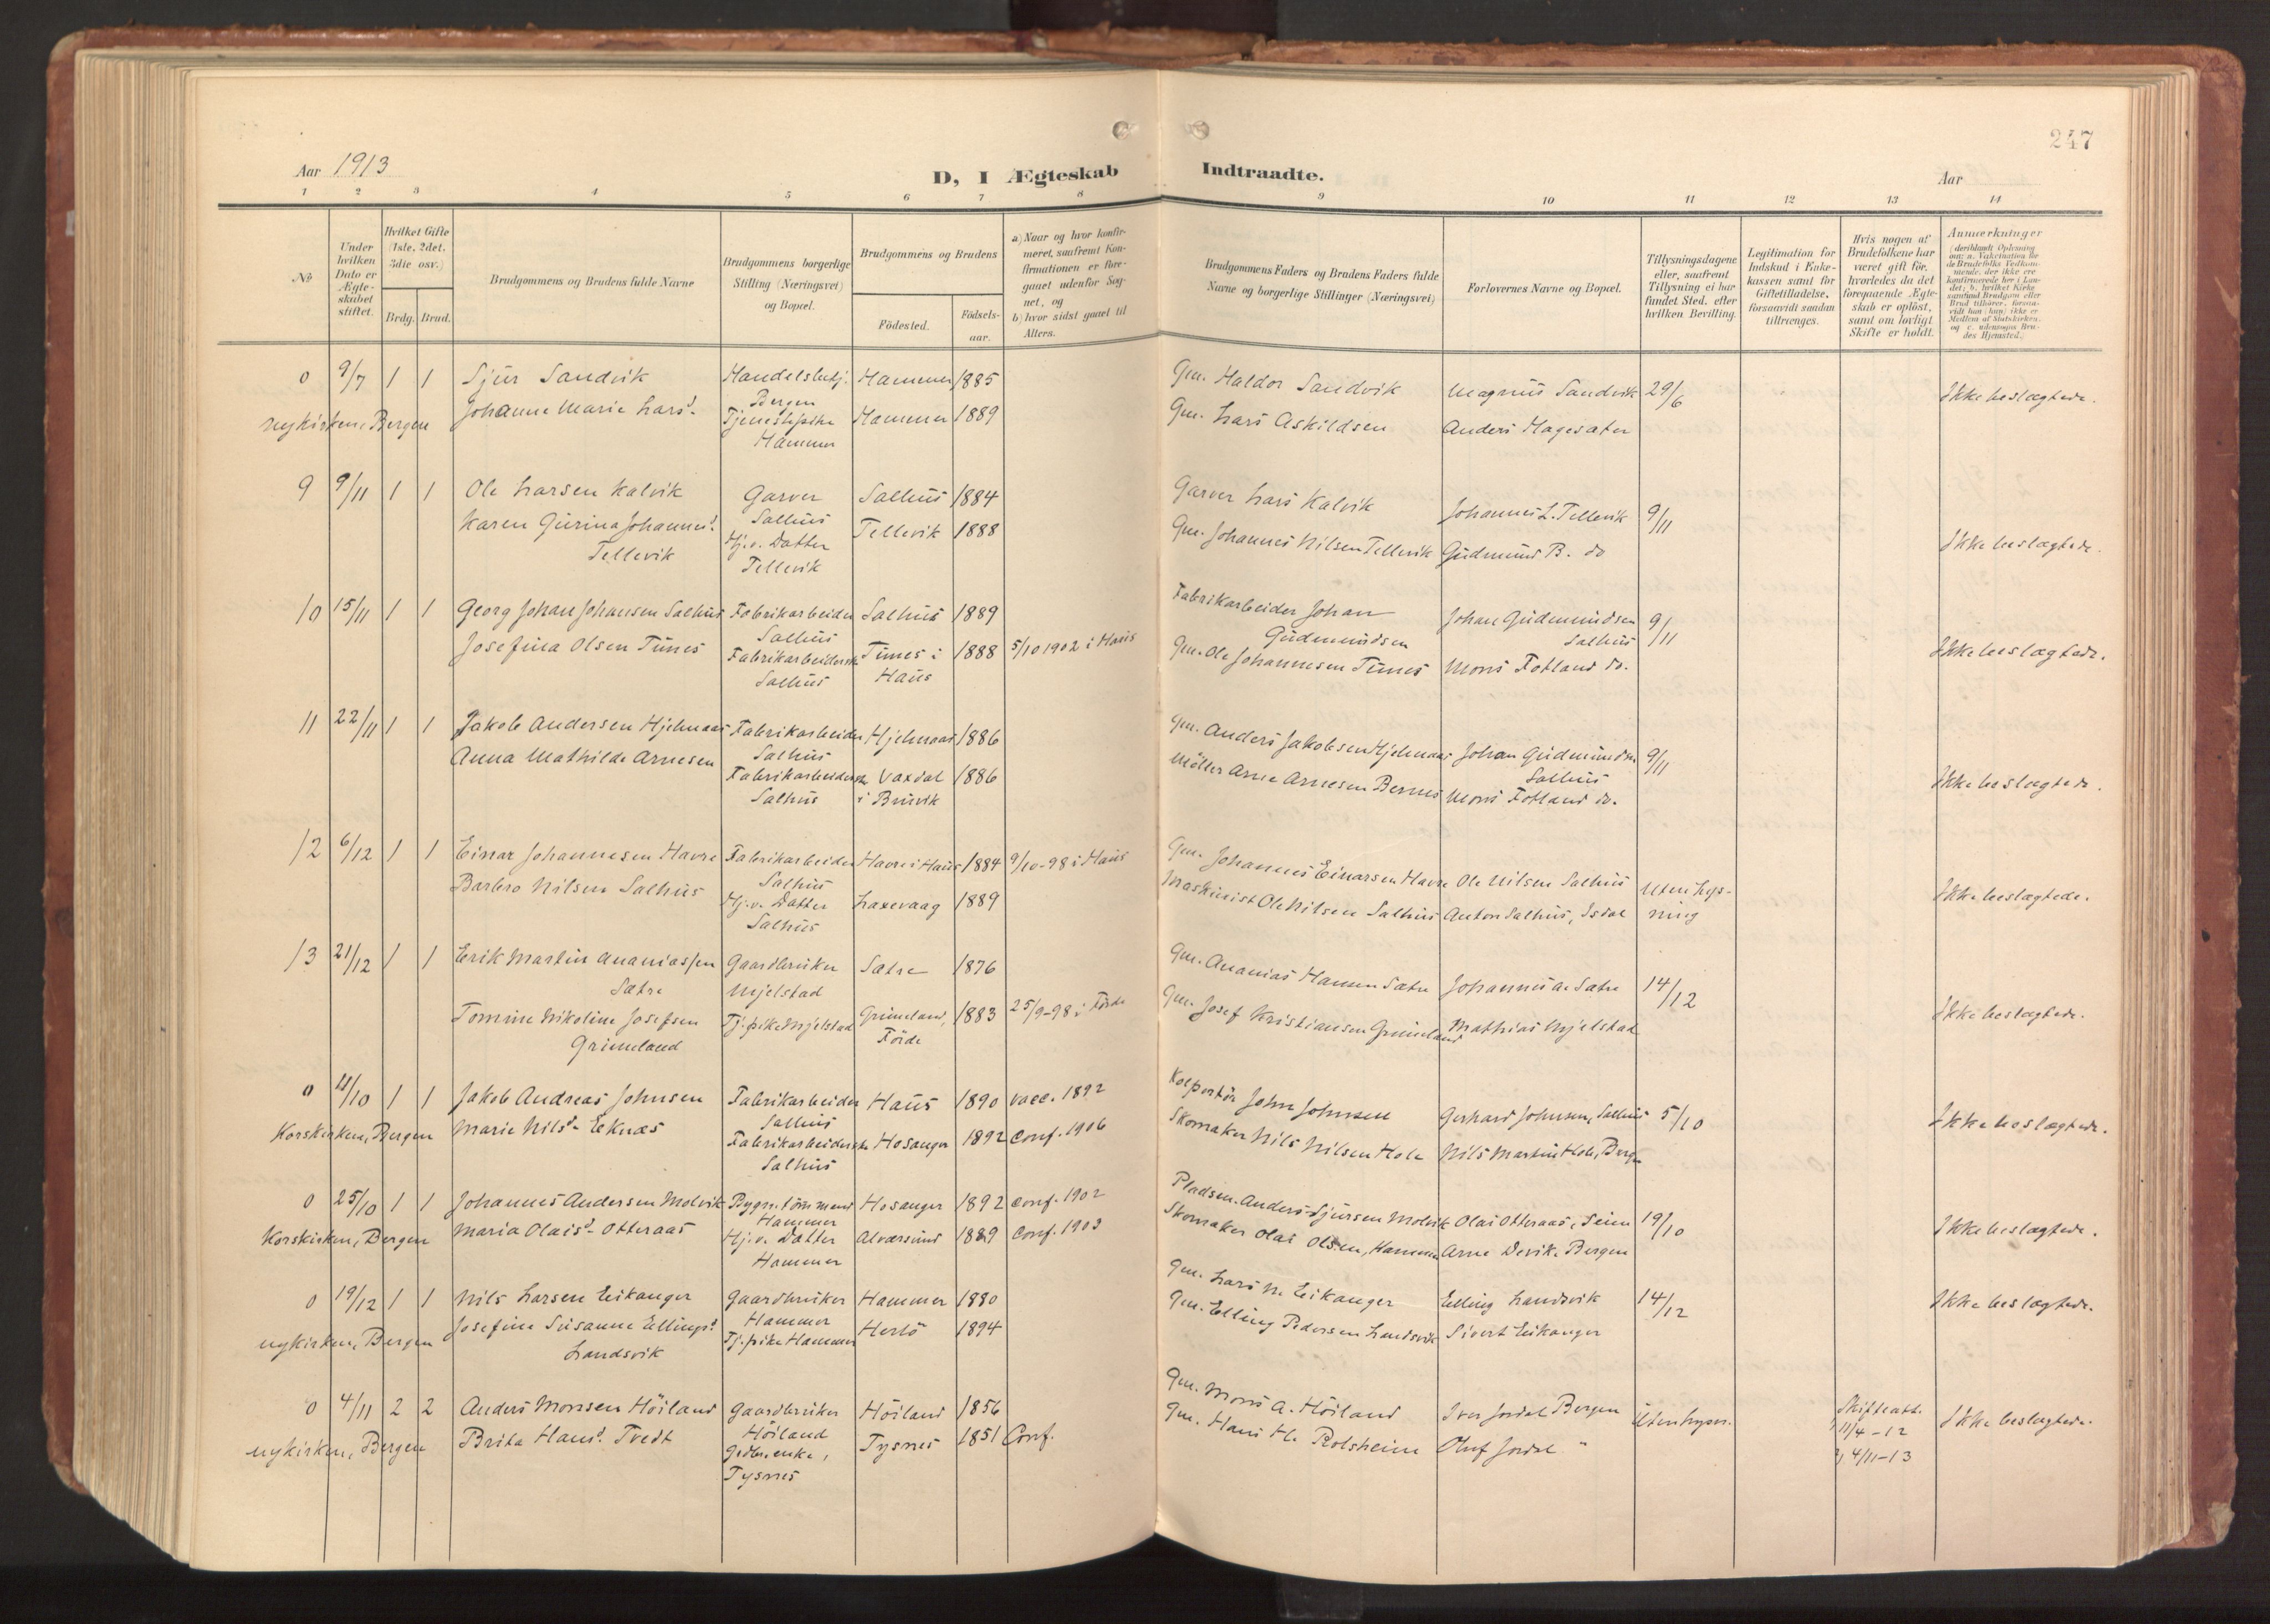 247
Aar 1913
D, I Ægteskab Indtraadte.
Aar
1 2 3 4 5 6 7 8 9 10 11 12 13 14
№
Under hvilken Dato er Ægteskabet stiftet.
Hvilket Gifte (1ste, 2det, 3die osv.)
Brdg. Brud.
Brudgommens og Brudens fulde Navne
Brudgommens borgerlige Stilling (Næringsvei) og Bopæl.
Brudgommens og Brudens
Födested.
Födsels-aar.
a) Naar og hvor konfirmeret, saafremt Konfirmationen er foregaaet udenfor Sognet, og
b) hvor sidst gaaet til Alters.
Brudgommens Faders og Brudens Faders fulde Navne og borgerlige Stillinger (Næringsvei)
Forlovernes Navne og Bopæl.
Tillysningsdagene eller, saafremt Tillysning ei har fundet Sted, efter hvilken Bevilling.
Legitimation for Indskud i Enkekassen samt for Giftetilladelse, forsaavidt saadan tiltrænges.
Hvis nogen af Brudefolkene har været gift för, hvorledes da det foregaaende Ægteskab er oplöst, samt om lovligt Skifte er holdt.
Anmerkninger
0 9/7 1 1 Sjur Sandvik Handelsbetj. Bergen Hammer 1885 Gm. Haldor Sandvik Magnus Sandvik 29/6 Ikke beslægtede.
Nykirken, Bergen Johanne Marie Larsd. Tjenestepike Hammer Hammer 1889 Gm. Lars Askildsen Anders Hagesæter
9 9/11 1 1 Ole Larsen Kalvik Garver Salhus Salhus 1884 Garver Lars Kalvik Johannes L. Tellevik 9/11
Karen Gurina Johannesd. Tellevik Hj.v. Datter Tellevik Tellevik 1888 Gm. Johannes Nilsen Tellevik Gudmund B. do Ikke beslægtede.
10 15/11 1 1 Georg Johan Johansen Salhus Fabrikarbeider Salhus Salhus 1889 Fabrikarbeider Johan Gudmundsen Johan Gudmundsen Salhus 9/11
Josefina Olsen Tunes Fabrikarbeiderske Salhus Tunes i Haus 1888 5/10 1902 i Haus Gm. Ole Johannesen Tunes Mons Fotland do. Ikke beslægtede.
11 22/11 1 1 Jakob Andersen Hjelmaas Fabrikarbeider Salhus Hjelmaas 1886 Gm. Anders Jakobsen Hjelmaas Johan Gudmundsen Salhus 9/11
Anna Mathilde Arnesen Fabrikarbeiderske Salhus Vaxdal i Bruvik 1886 Möller Arne Arnesen Mons Fotland do. Ikke beslægtede.
12 6/12 1 1 Einar Johannesen Havre Fabrikarbeider Salhus Havre i Haus 1884 9/10-98 i Haus Gm. Johannes Einarsen Havre Ole Nilsen Salhus Uten lysning
Barbro Nilsen Salhus Hj.v. Datter Salhus Laxevaag 1889 Maskinist Ole Nilsen Salhus Anton Salhus, Isdal Ikke beslægtede.
13 21/12 1 1 Erik Martin Ananiassen Sætre Gaardbruker Mjelstad Sætre 1876 Gm. Ananias Hansen Sætre Johannes A. Sætre 14/12
Tomine Nikoline Josefsen Grimeland Tj.pike Mjelstad Grimeland, Förde 1883 25/9-98 i Förde Gm. Josef Kristiansen Grimeland Mathias Mjelstad Ikke beslægtede.
0 11/10 1 1 Jakob Andreas Johnsen Fabrikarbeider Salhus Haus 1890 vacc. 1892 Kolportör John Johnsen Gerhard Johnsen, Salhus 5/10 Ikke beslægtede.
Korskirken, Bergen Marie Nilsd. Eknæs Fabrikarbeiderske Salhus Hosanger 1892 Conf. 1906 Skomaker Nils Nilsen Hole Nils Martin Hole, Bergen
0 25/10 1 1 Johannes Andersen Molvik Bygn.tömmerm. Hammer Hosanger 1892 Conf. 1902 Pladsm. Anders Sjursen Molvik Olai Otteraas, Seim 19/10 Ikke beslægtede.
Korskirken, Bergen Maria Olaisd. Otteraas Hj.v. Datter Hammer Alversund 1889 Conf. 1903 Skomaker Olai Olsen, Hammer Arne Devik, Bergen
0 19/12 1 1 Nils Larsen Eikanger Gaardbruker Hammer Hammer 1880 Gm. Lars N. Eikanger Elling Landsvik 14/12 Ikke beslægtede.
Nykirken, Bergen Josefine Susanne Ellingsd. Landsvik Tj.pike Hammer Herlö 1894 Gm. Elling Pedersen Landsvik Sivert Eikanger
0 4/11 2 2 Anders Monsen Höiland Gaardbruker Höiland Höiland 1856 Gm. Mons A. Höiland Iver Jordal Bergen Uten lysn. Skifteatt. 1, 11/4-12 Ikke beslægtede.
Nykirken, Bergen Brita Hansd. Tvedt Gdbr.enke, Tysnes Tysnes 1851 Conf. Gm. Hans H. Rolsheim Oluf Jordal " 2, 4/11-13